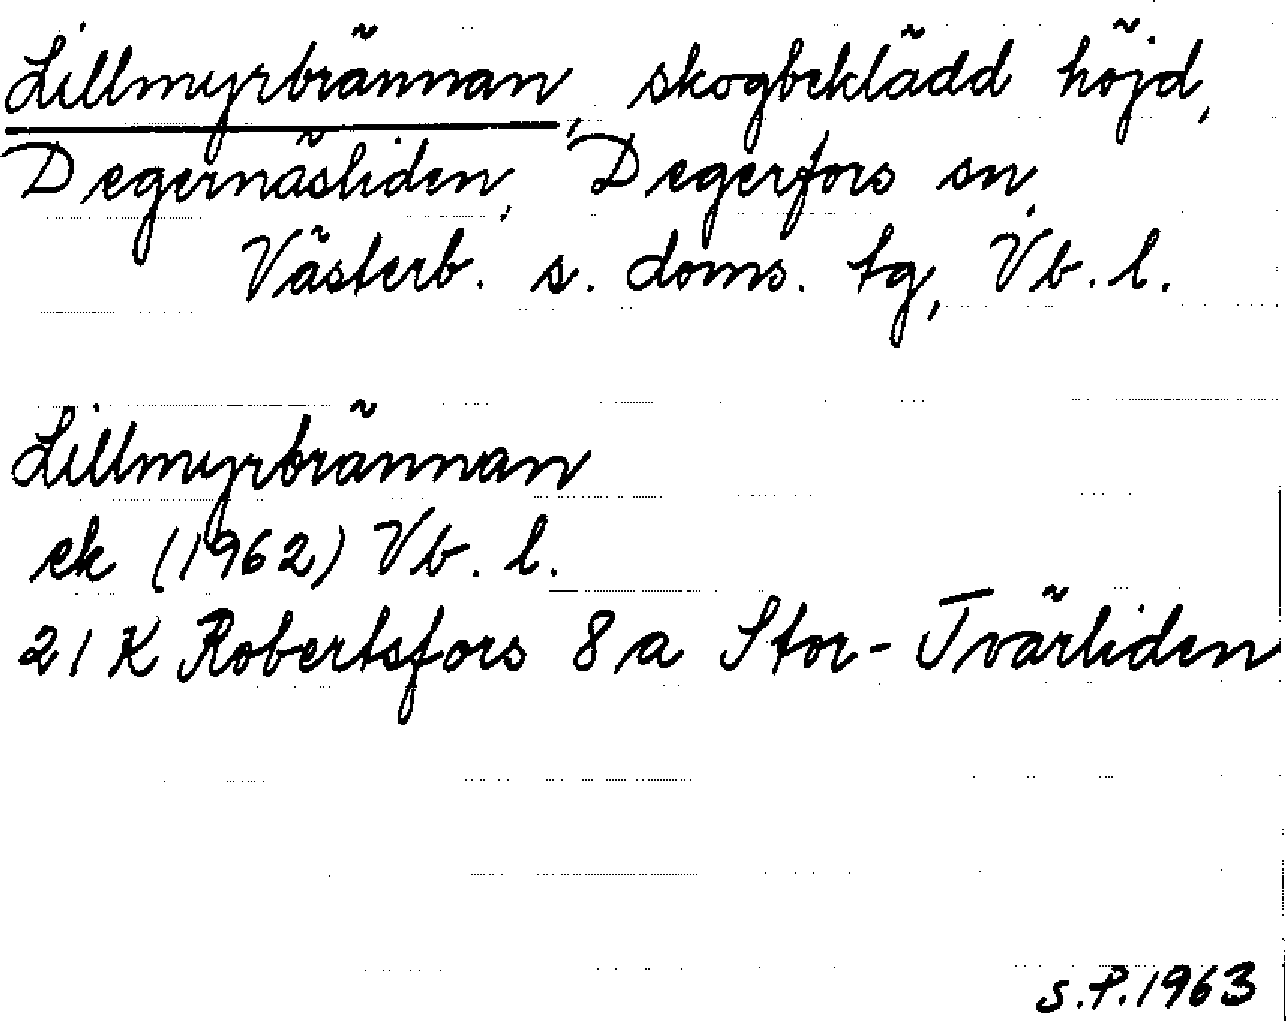 Lillmyrbrännan, skogbeklädd höjd,
Degernäsliden, Degerfors sn,
Västerb. s. doms. tg, Vb. l.
Lillmyrbrännan
ek (1962) Vb. l.
21 K Robertsfors 8 a Stor-Tvärliden
S.P.1963